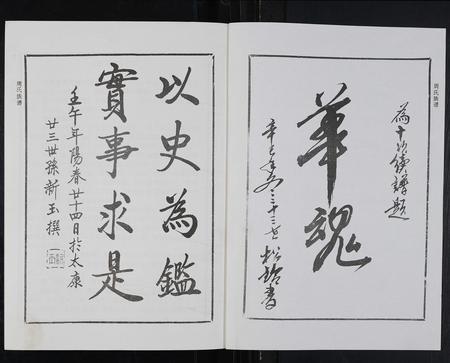 周氏族谱
為十次續譜題
華魂
辛巳年冬三十三世松齡書
以史為鑑
實事求是
壬午年陽春廿四日於太康
廿三世孫新玉撰
周氏族谱